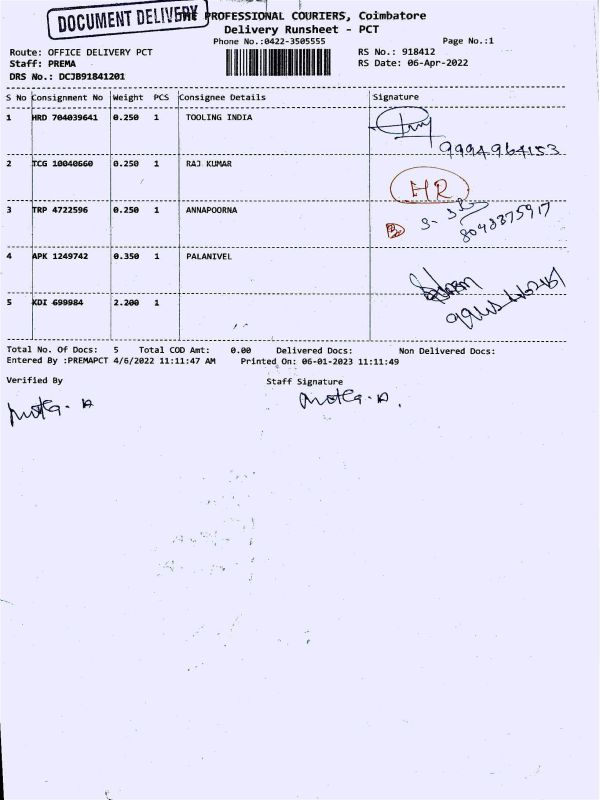 DOCUMENT DELIVERY
THE PROFESSIONAL COURIERS, Coimbatore
Delivery Runsheet - PCT
Phone No.:0422-3505555 Page No.:1
Route: OFFICE DELIVERY PCT RS No.: 918412
Staff: PREMA RS Date: 06-Apr-2022
DRS No.: DCJB91841201
S No Consignment No Weight PCS Consignee Details Signature
1 HRD 704039641 0.250 1 TOOLING INDIA
9994964153
2 TCG 10040660 0.250 1 RAJ KUMAR
HR
3 TRP 4722596 0.250 1 ANNAPOORNA
8048375917
4 APK 1249742 0.350 1 PALANIVEL
5 KDI 699984 2.200 1
Total No. Of Docs: 5 Total COD Amt: 0.00 Delivered Docs: Non Delivered Docs:
Entered By :PREMAPCT 4/6/2022 11:11:47 AM Printed On: 06-01-2023 11:11:49
Verified By Staff Signature